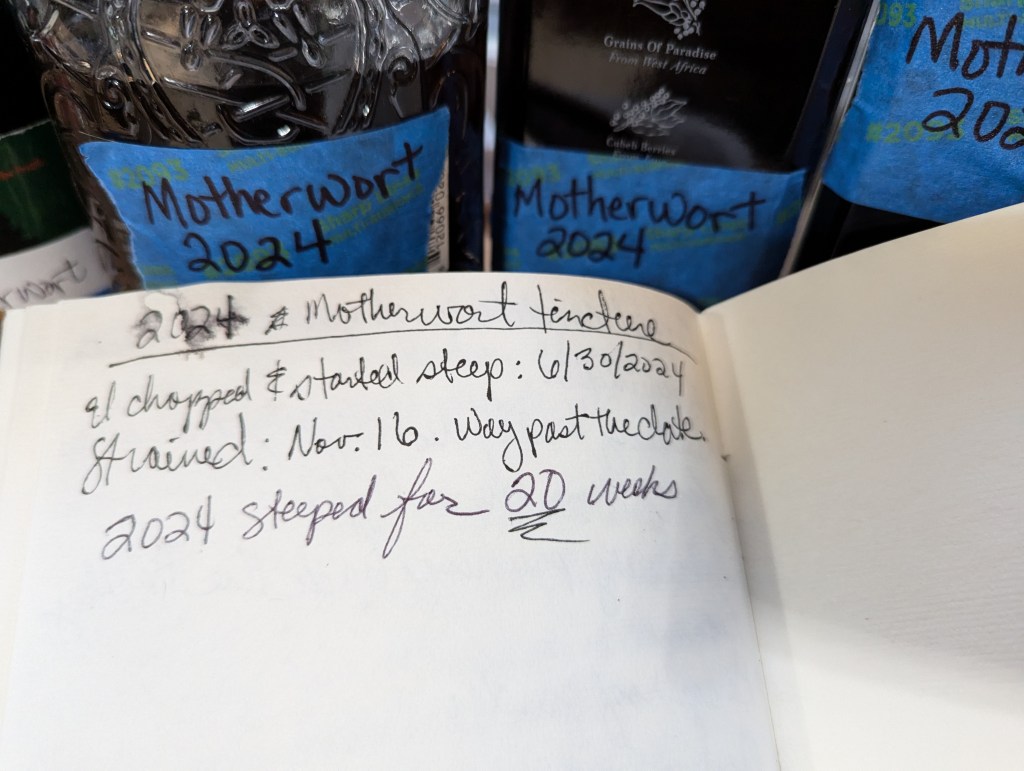 Grains Of Paradise
From West Africa
Cubeb Berries
Motherwort
2024
Motherwort
2024
Moth
202
rwort
2024 Motherwort tincture
I chopped & started steep: 6/30/2024
Strained: Nov. 16. Way past the date.
2024 steeped for 20 weeks